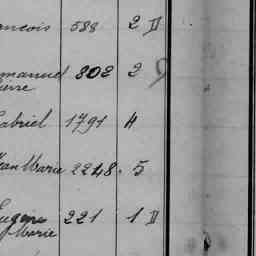 ancois 588 2 II
manuel 802 2
ierre
abriel 1791 4
Jean Marie 2248. 5
Eugène 221 1 II
Marie